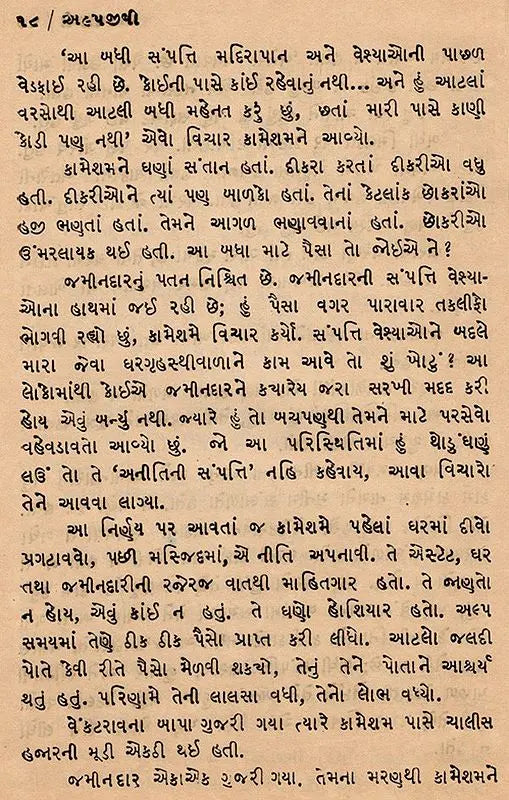 ૧૮ / અલ્પજીવી
‘આ બધી સંપત્તિ મદિરાપાન અને વેશ્યાઓની પાછળ
વેડફાઈ રહી છે. કોઈની પાસે કાંઈ રહેવાનું નથી... અને હું આટલાં
વરસોથી આટલી બધી મહેનત કરું છું, છતાં મારી પાસે કાણી
કોડી પણ નથી’ એવો વિચાર કામેશમને આવ્યો.
કામેશમને ઘણાં સંતાન હતાં. દીકરા કરતાં દીકરીઓ વધુ
હતી. દીકરીઓને ત્યાં પણ બાળકો હતાં. તેનાં કેટલાંક છોકરાંઓ
હજી ભણતાં હતાં. તેમને આગળ ભણાવવાનાં હતાં. છોકરીઓ
ઉંમરલાયક થઈ હતી. આ બધા માટે પૈસા તો જોઈએ ને ?
જમીનદારનું પતન નિશ્ચિત છે. જમીનદારની સંપત્તિ વેશ્યા-
ઓના હાથમાં જઈ રહી છે; હું પૈસા વગર પારાવાર તકલીફો
ભોગવી રહ્યો છું, કામેશમે વિચાર કર્યો. સંપત્તિ વેશ્યાઓને બદલે
મારા જેવા ઘરગૃહસ્થીવાળાને કામ આવે તો શું ખોટું ? આ
લોકોમાંથી કોઈએ જમીનદારને કયારેય જરા સરખી મદદ કરી
હોય એવું બન્યું નથી. જ્યારે હું તો બચપણથી તેમને માટે પરસેવો
વહેવડાવતો આવ્યો છું. જો આ પરિસ્થિતિમાં હું થોડું ઘણું
લઉં તો તે ‘અનીતિની સંપત્તિ’ નહિ કહેવાય, આવા વિચારો
તેને આવવા લાગ્યા.
આ નિર્ણય પર આવતાં જ કામેશમે પહેલાં ઘરમાં દીવો
પ્રગટાવવો, પછી મસ્જિદમાં, એ નીતિ અપનાવી. તે એસ્ટેટ, ઘર
તથા જમીનદારીની રજેરજ વાતથી માહિતગાર હતો. તે જાણતો
ન હોય, એવું કાંઈ ન હતું. તે ઘણો હોશિયાર હતો. અલ્પ
સમયમાં તેણે ઠીક ઠીક પૈસો પ્રાપ્ત કરી લીધો. આટલો જલદી
પોતે કેવી રીતે પૈસો મેળવી શકયો, તેનું તેને પોતાને આશ્ચર્ય
થતું હતું. પરિણામે તેની લાલસા વધી, તેનો લોભ વધ્યો.
વેંકટરાવના બાપા ગુજરી ગયા ત્યારે કામેશમ પાસે ચાલીસ
હજારની મૂડી એકઠી થઈ હતી.
જમીનદાર એકાએક ગુજરી ગયા. તેમના મરણથી કામેશમને